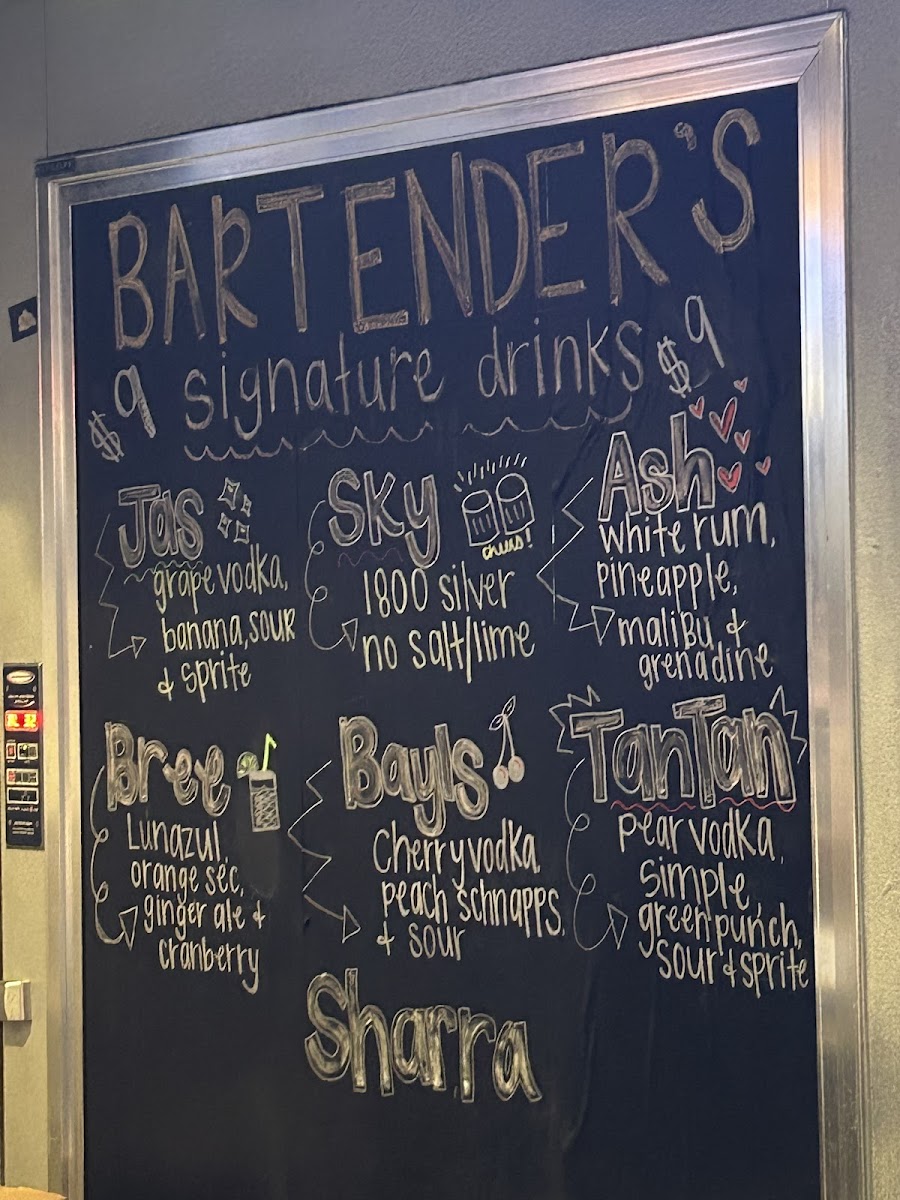 BARTENDER'S
$9 signature drinks $9
Jas
grape vodka,
banana, sour
& sprite
Sky
cheers!
1800 silver
no salt/lime
Ash
white rum,
pineapple,
malibu &
grenadine
Bree
Lunazul,
orange sec,
ginger ale &
cranberry
Bayls
Cherry vodka,
peach schnapps,
& sour
TanTan
pear vodka,
simple,
green punch,
sour & sprite
Sharra